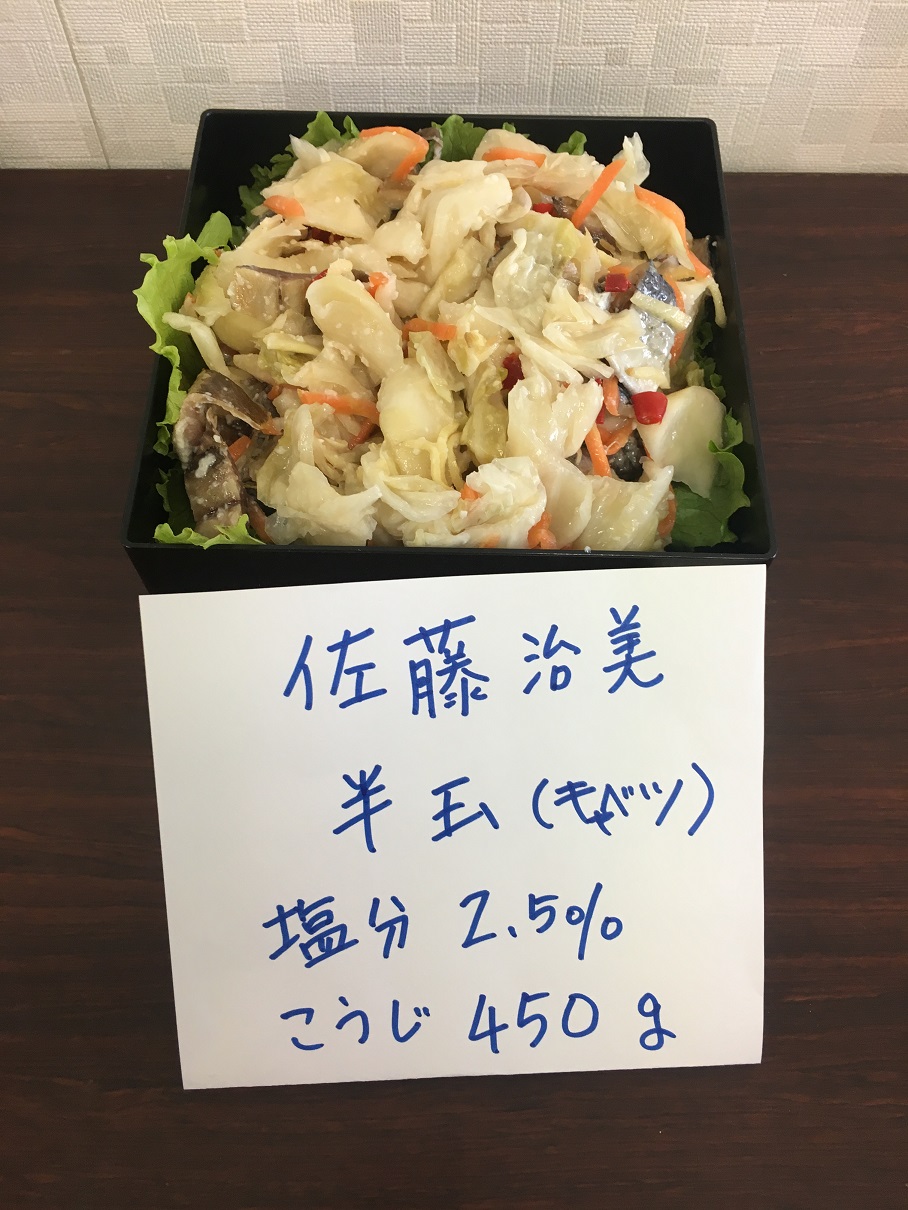 佐藤治美
半玉(キャベツ)
塩分 2.5%
こうじ 450g